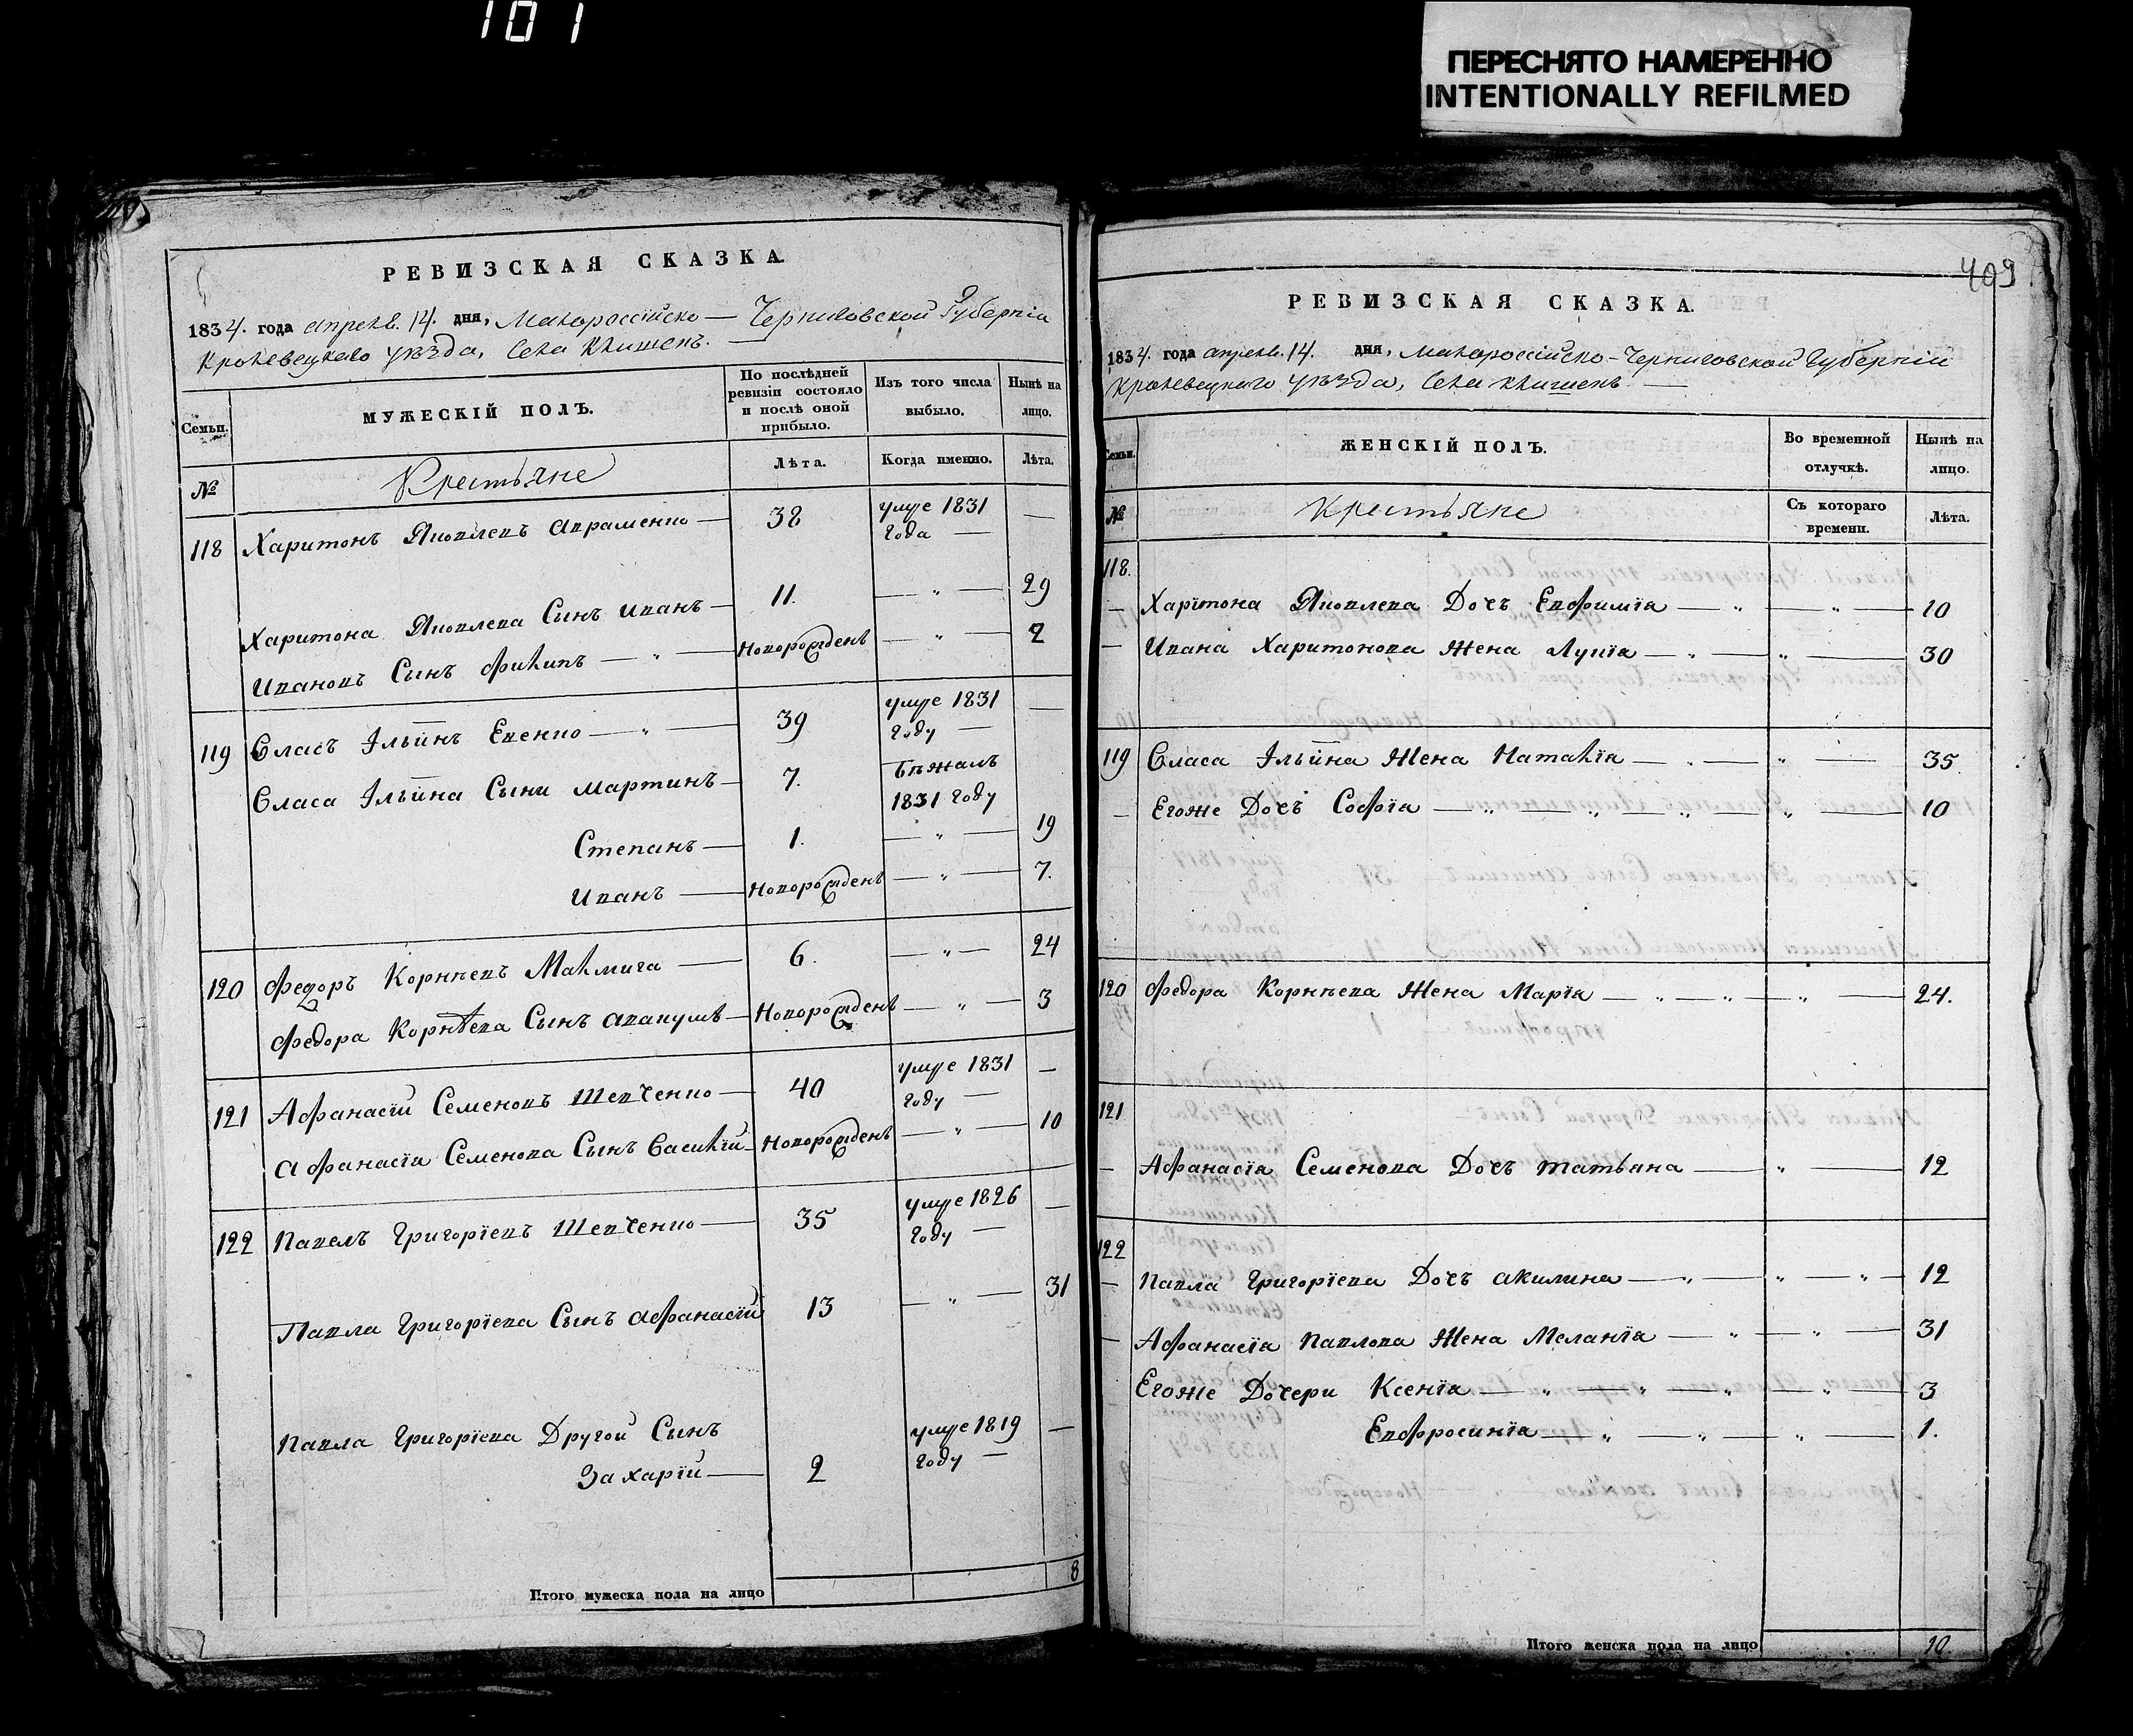 101
ПЕРЕСНЯТО НАМЕРЕННО
INTENTIONALLY REFILMED
РЕВИЗСКАЯ СКАЗКА.
1834. года апреля. 14. дня, Малороссійско — Черниговской Губерніи
Кролевецкаго уѣзда, Села Клишекъ. —
Семьи.
МУЖЕСКІЙ ПОЛЪ.
По послѣдней ревизіи состояло и послѣ оной прибыло.
Изъ того числа выбыло.
Нынѣ на лицо.
№
Крестьяне
Лѣта.
Когда именно.
Лѣта.
118 Харитонъ Яковлевъ Авраменко — 38 умре 1831 года — —
Харитона Яковлева Сынъ Иванъ — 11. — „ — 29
Ивановъ Сынъ Филипъ — „ — Новорожденъ — „ — 2
119 Власъ Ільинъ Евенко — „ — 39 умре 1831 году — —
Власа Ільина Сыни Мартинъ — 7. Бѣжалъ 1831 году
Степанъ — 1. — „ — 19
Иванъ — Новорожденъ — „ — 7.
120 Федоръ Корнѣевъ Малмига — 6. — „ — 24
Федора Корнѣева Сынъ Вакулъ — Новорожденъ — „ — 3
121 Афанасій Семеновъ Шевченко — 40 умре 1831 году — —
Афанасія Семенова Сынъ Василій — Новорожденъ — „ — 10
122 Павелъ Григоріевъ Шевченко — 35 умре 1826 году — —
Павла Григоріева Сынъ Афанасій 13 — „ — 31
Павла Григоріева Другой Сынъ
Захарій — 2 умре 1819 году — —
Итого мужеска пола на лицо 8
409
РЕВИЗСКАЯ СКАЗКА.
1834. года апреля. 14. дня, Малороссійско — Черниговской Губерніи
Кролевецкаго уѣзда, Села Клишекъ —
Семьи.
ЖЕНСКІЙ ПОЛЪ.
Во временной отлучкѣ.
Нынѣ на лицо.
№
Крестьяне
Съ котораго времени.
Лѣта.
118.
— Харітона Яковлева Дочъ Евфимія — „ — „ — 10
— Ивана Харитонова Жена Лукія — „ — „ — 30
119 Власа Ільина Жена Наталія — „ — „ — 35.
— Егоже Дочъ Софія — „ — „ — „ — „ — 10
120 Федора Корнѣева Жена Марія — „ — „ — „ — 24.
121
— Афанасія Семенова Дочъ Татьяна — „ — 12
122
— Павла Григоріева Дочъ Акилина — „ — „ — „ — 12
— Афанасія Павлова Жена Меланія — „ — „ — 31
Егоже Дочери Ксенія — „ — „ — „ — „ — 3
Евфросинія — „ — „ — „ — 1.
Итого женска пола на лицо 10.